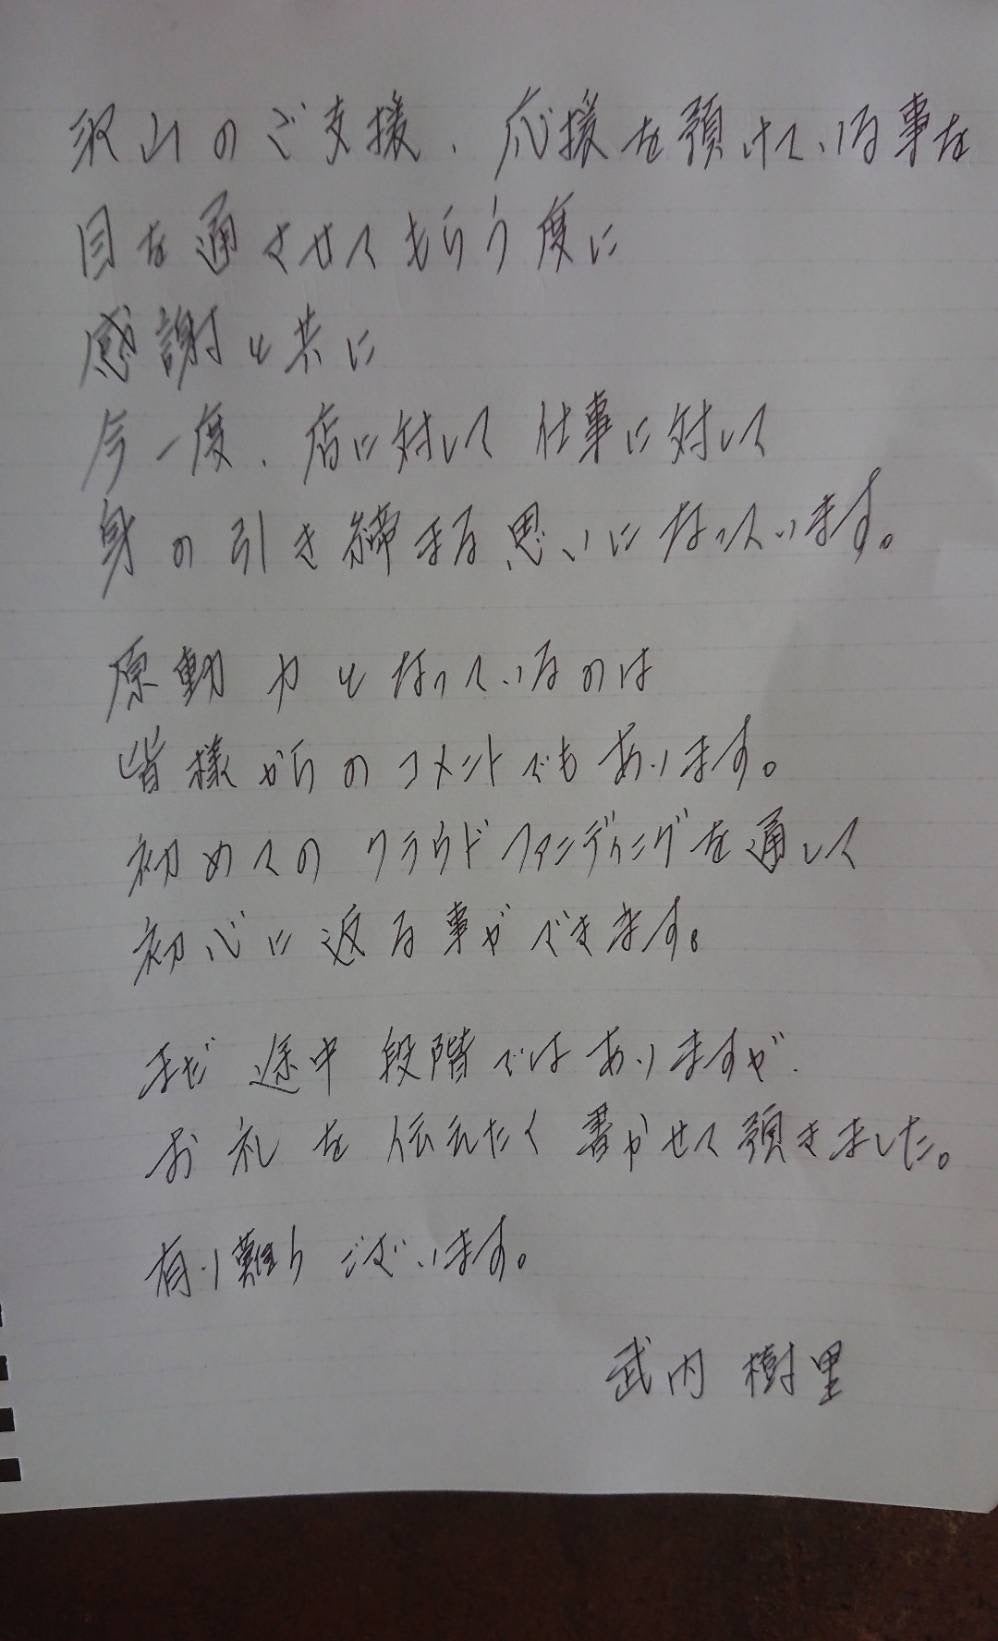 沢山のご支援、応援を頂けている事を
目を通させてもらう度に
感謝と共に
今一度、店に対して 仕事に対して
身の引き締まる思いになっています。
原動力となっているのは
皆様からのコメントでもあります。
初めてのクラウドファンディングを通して
初心に返る事ができます。
まだ途中段階ではありますが、
お礼を伝えたく書かせて頂きました。
有り難うございます。
武内 樹里